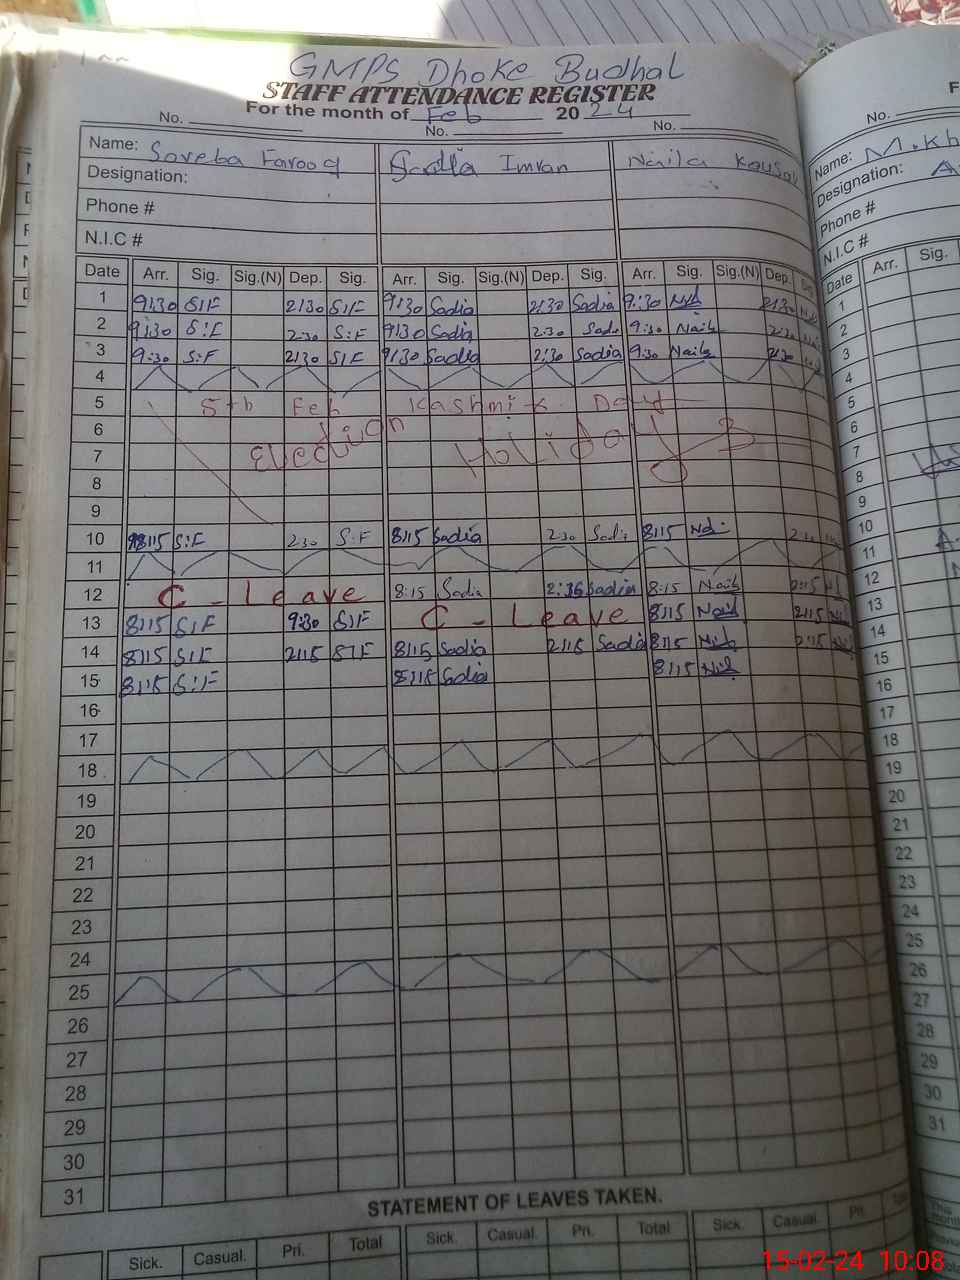 GMPS Dhoke Budhal
STAFF ATTENDANCE REGISTER
For the month of Feb 2024
No. No. No. No.
Name: Soveba Farooq Sadia Imran Naila Kousar Name: M.Kh
Designation: Designation: A
Phone # Phone #
N.I.C # N.I.C #
Date Arr. Sig. Sig.(N) Dep. Sig. Arr. Sig. Sig.(N) Dep. Sig. Arr. Sig. Sig.(N) Dep. Date Arr. Sig.
1 9:30 S:F 2:30 S:F 9:30 Sadia 2:30 Sadia 9:30 2:30 1
2 9:30 S:F 2:30 S:F 9:30 Sadia 2:30 Sadi 9:30 Naila 2:30 2
3 9:30 S:F 2:30 S:F 9:30 Sadia 2:30 Sadia 9:30 Naila 2:30 3
4 4
5 5th Feb Kashmir Day 5
6 Election Holiday 6
7 7
8 8
9 9
10 8:15 S:F 2:30 S:F 8:15 Sadia 2:30 Sadi 8:15 2:30 10
11 11
12 C - Leave 8:15 Sadia 2:36 Sadia 8:15 Naila 2:15 12
13 8:15 S:F 9:30 S:F C - Leave 8:15 Naila 2:15 13
14 8:15 S:F 2:15 S:F 8:15 Sadia 2:15 Sadia 8:15 2:15 14
15 8:15 S:F 8:15 Sadia 8:15 15
16 16
17 17
18 18
19 19
20 20
21 21
22 22
23 23
24 24
25 25
26 26
27 27
28 28
29 29
30 30
31 31
STATEMENT OF LEAVES TAKEN.
Sick. Casual. Pri. Total Sick. Casual. Pri. Total Sick. Casual. Pri. This
15-02-24 10:08